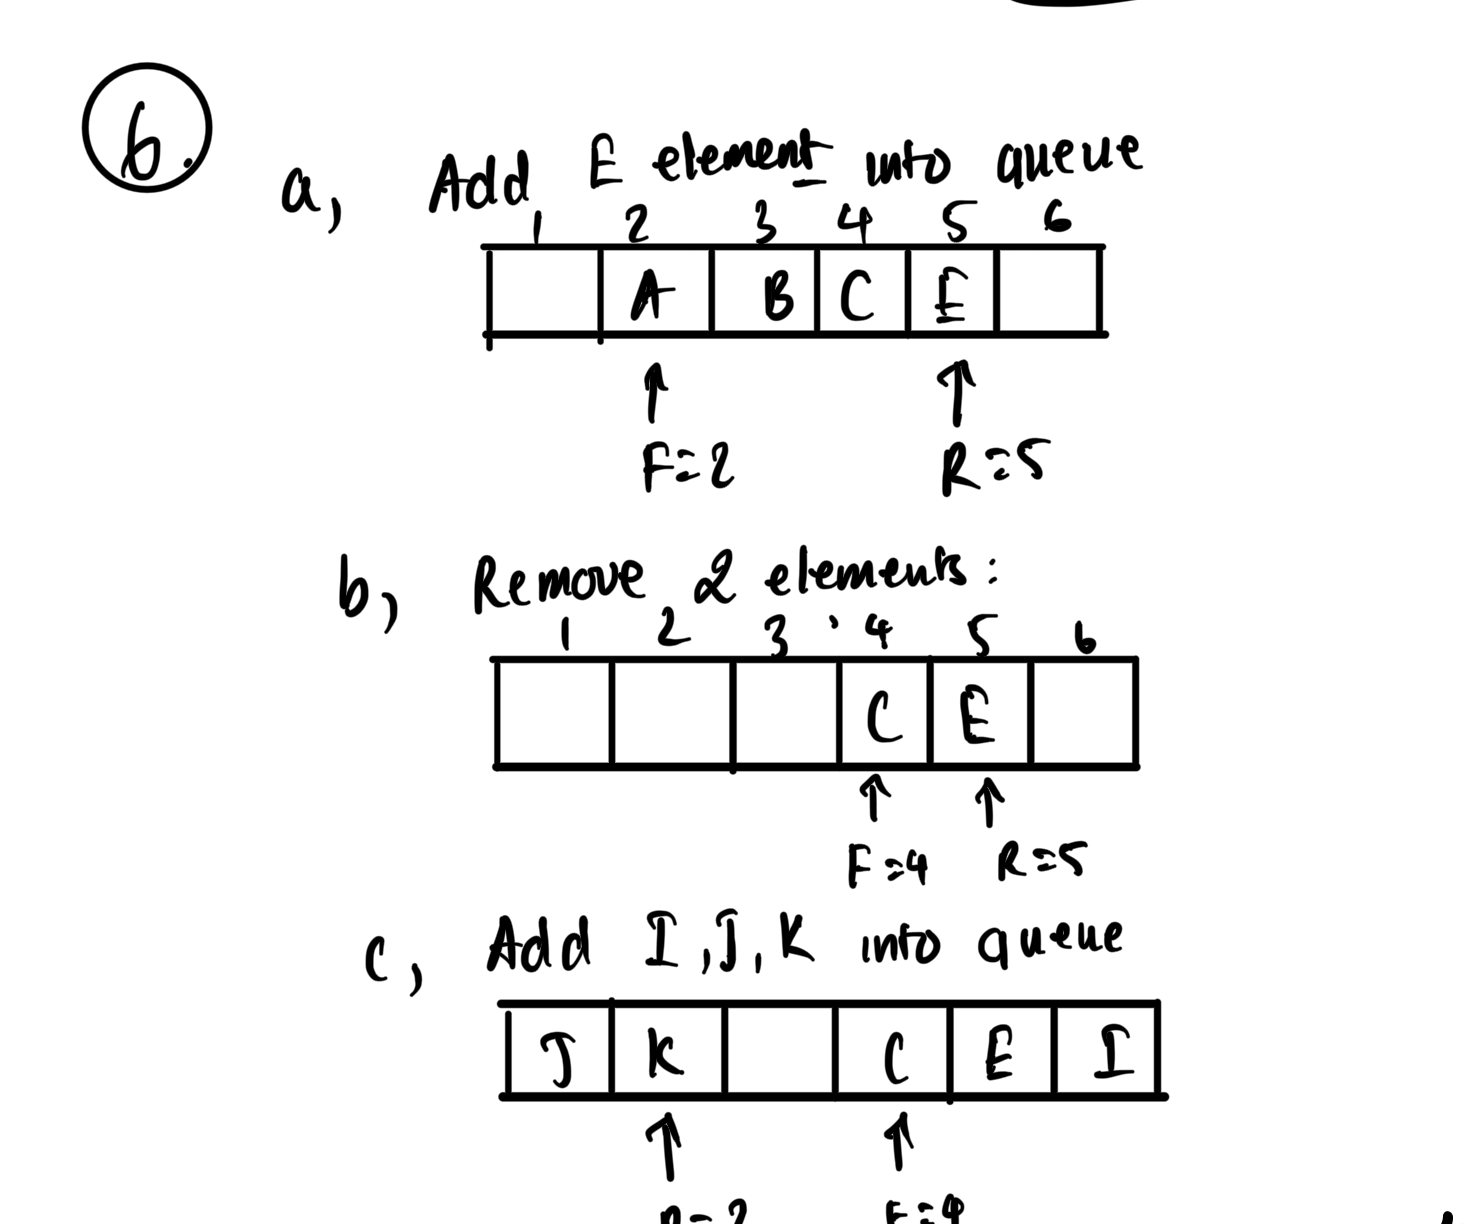 6.
a, Add E element into queue
1 2 3 4 5 6
A B C E
F=2 R=5
b, Remove 2 elements:
1 2 3 4 5 6
C E
F=4 R=5
c, Add I, J, K into queue
J K C E I
R=2 F=4